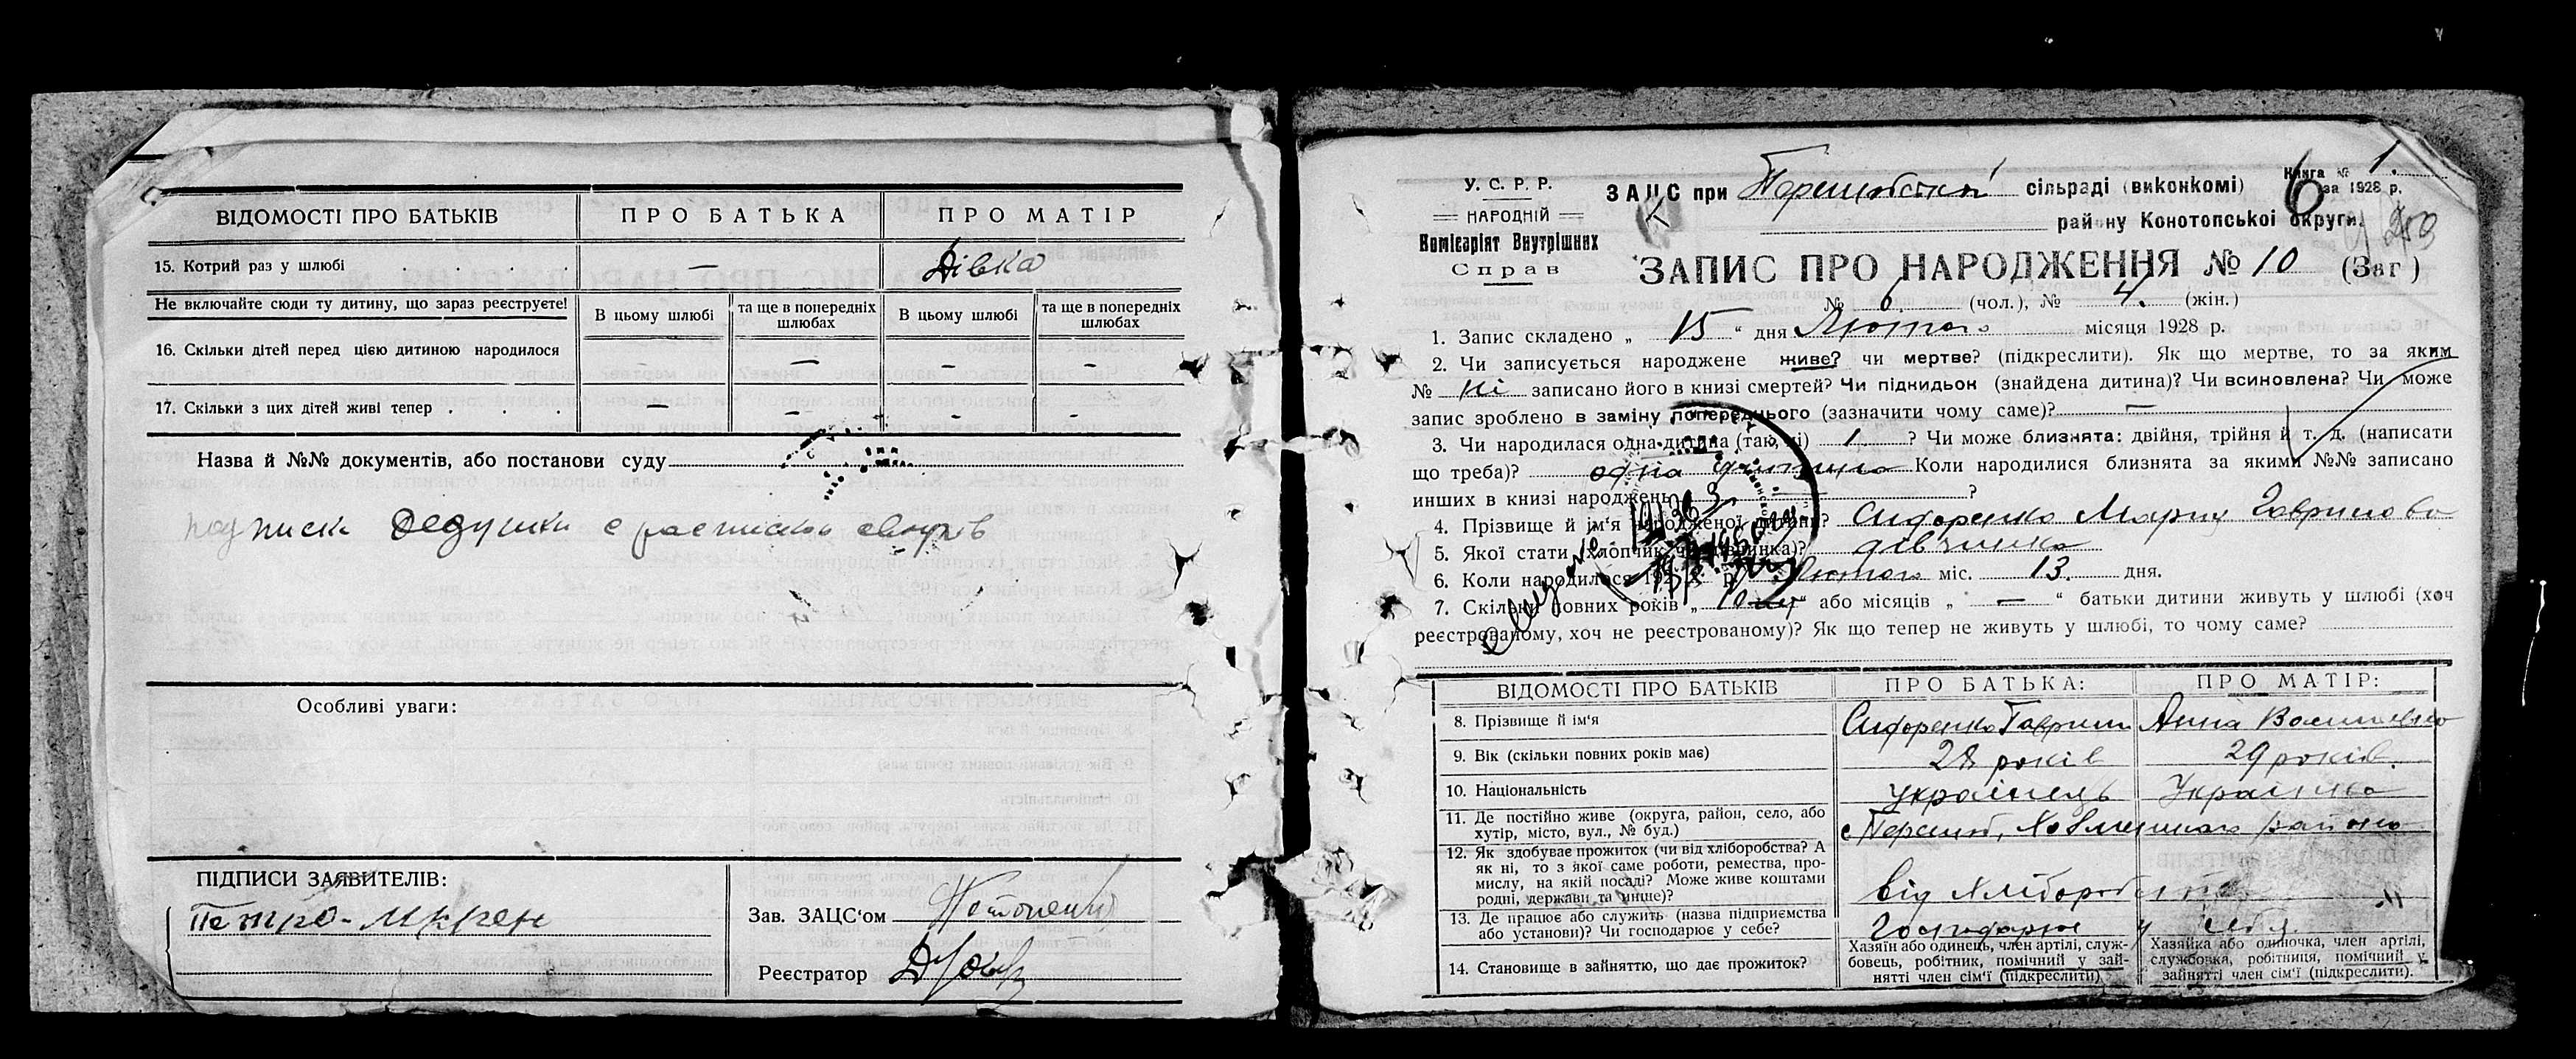 ВІДОМОСТІ ПРО БАТЬКІВ ПРО БАТЬКА ПРО МАТІР
15. Котрий раз у шлюбі — Дівка
Не включайте сюди ту дитину, що зараз реєструєте!
В цьому шлюбі та ще в попередніх шлюбах В цьому шлюбі та ще в попередніх шлюбах
16. Скільки дітей перед цією дитиною народилося — — — —
17. Скільки з цих дітей живі тепер — — — —
Назва й №№ документів, або постанови суду
Особливі уваги:
ПІДПИСИ ЗАЯВИТЕЛІВ:
Зав. ЗАЦС'ом
Реєстратор
У. С. Р. Р.
НАРОДНІЙ
Комісаріят Внутрішних
Справ
Книга № 1.
ЗАЦС при сільраді (виконкомі) за 1928 р.
району Конотопської округи.
ЗАПИС ПРО НАРОДЖЕННЯ № 10 (Заг)
№ 6 (чол.), № 4. (жін.)
1. Запис складено „ 15 “ дня Лютого місяця 1928 р.
2. Чи записується народжене живе? чи мертве? (підкреслити). Як що мертве, то за яким
№ Ні записано його в книзі смертей? Чи підкидьок (знайдена дитина)? Чи всиновлена? Чи може
запис зроблено в заміну попереднього (зазначити чому саме)? —
3. Чи народилася одна дитина (так, ні) 1. ? Чи може близнята: двійня, трійня й т. д. (написати
що треба)? одна дитина Коли народилися близнята за якими №№ записано
инших в книзі народжень — ?
4. Прізвище й ім'я народженої дитини? Сидоренко Мария Гаврилова
5. Якої стати (хлопчик чи дівчинка)? дівчинка
6. Коли народилося 192 р. Лютого міс. 13. дня.
7. Скільки повних років „ “ або місяців „ — “ батьки дитини живуть у шлюбі (хоч
реєстрованому, хоч не реєстрованому)? Як що тепер не живуть у шлюбі, то чому саме?
ВІДОМОСТІ ПРО БАТЬКІВ ПРО БАТЬКА: ПРО МАТІР:
8. Прізвище й ім'я Сидоренко Гаврил Анна Васильевна
9. Вік (скільки повних років має) 28 років 29 років.
10. Національність українець Українка
11. Де постійно живе (округа, район, село, або
хутір, місто, вул., № буд.) району
12. Як здобуває прожиток (чи від хліборобства? А
як ні, то з якої саме роботи, ремества, про-
мислу, на якій посаді? Може живе коштами
родні, держави та инще)? від Хліборобства
13. Де працює або служить (назва підприємства
або установи)? Чи господарює у себе? Господарює у себя.
14. Становище в зайняттю, що дає прожиток?
Хазяїн або одинець, член артілі, служ-
бовець, робітник, помічний у зай-
нятті член сім'ї (підкреслити).
Хазяйка або одиночка, член артілі,
службовка, робітниця, помічний у
зайнятті член сім'ї (підкреслити).